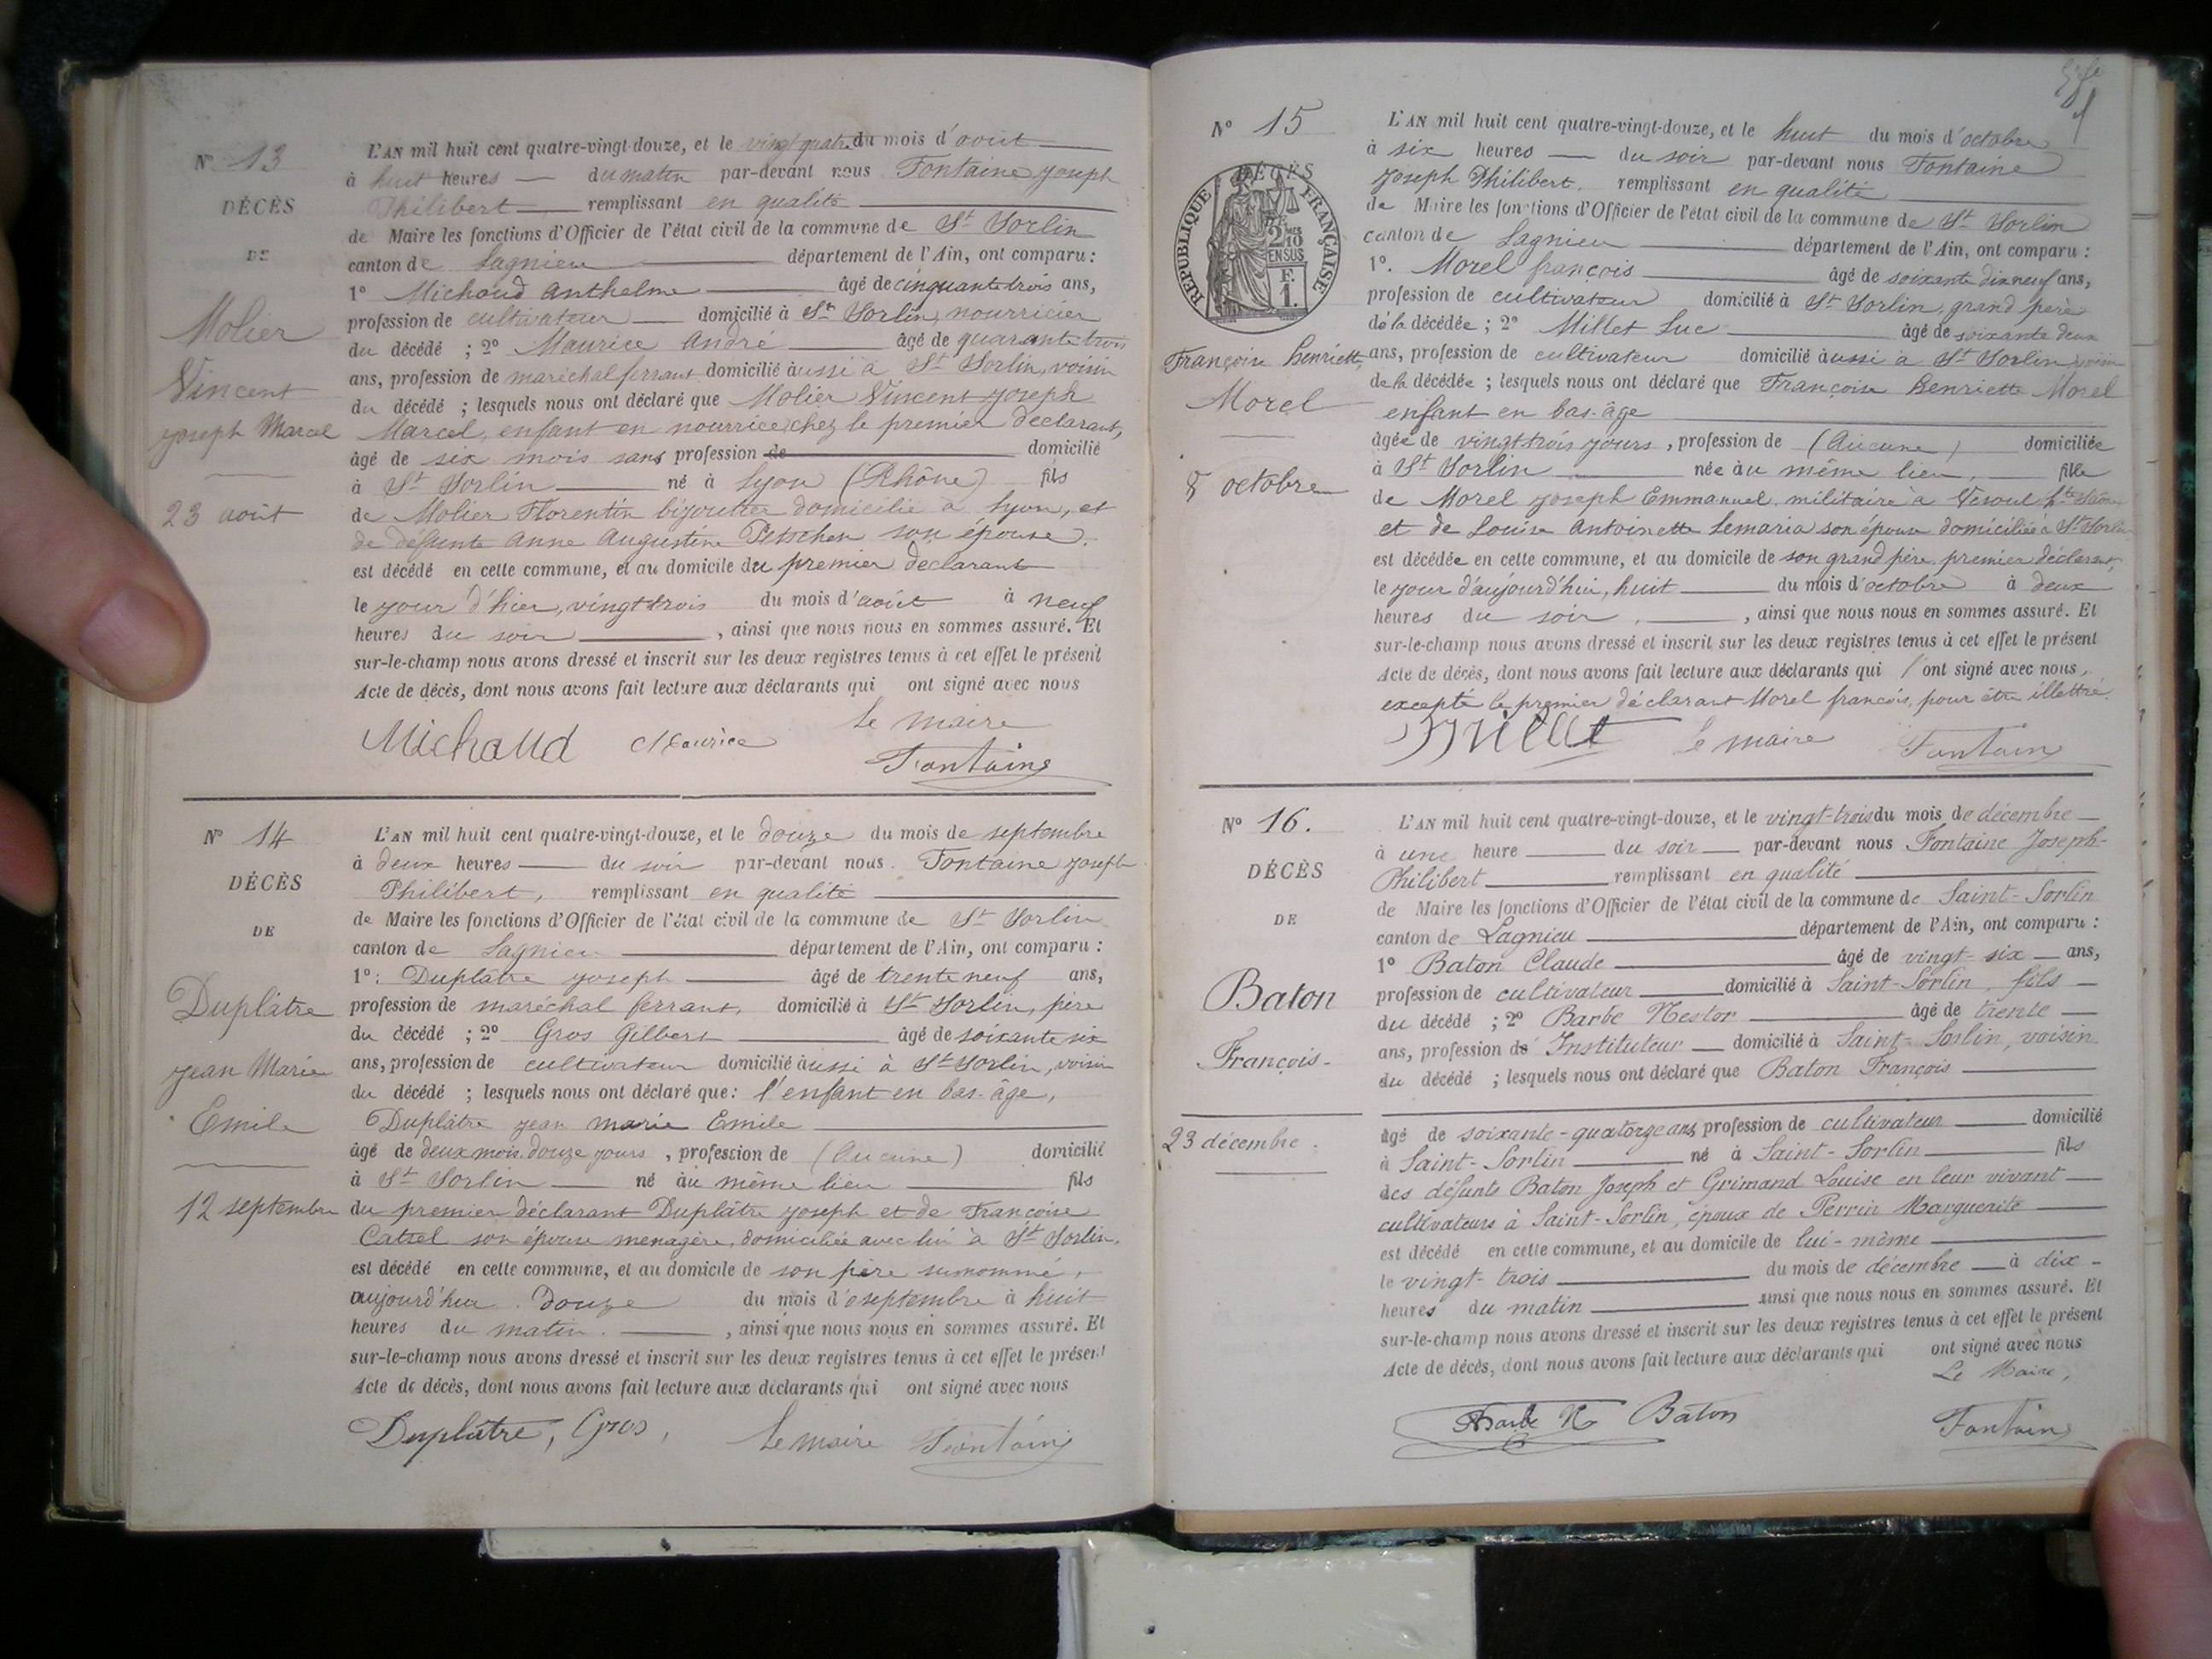 No 13
DÉCÈS
DE
Molier
Vincent
Joseph Marcel
23 août
L'AN mil huit cent quatre-vingt-douze, et le vingt quatre du mois d'août
à huit heures du matin par-devant nous Fontaine Joseph
Philibert remplissant en qualité
de Maire les fonctions d'Officier de l'état civil de la commune de St Sorlin
canton de Lagnieu département de l'Ain, ont comparu :
1o Michaud Anthelme âgé de cinquante trois ans,
profession de cultivateur domicilié à St Sorlin, nourricier
du décédé ; 2o Maurice André âgé de quarante trois
ans, profession de maréchal ferrant domicilié aussi à St Sorlin, voisin
du décédé ; lesquels nous ont déclaré que Molier Vincent Joseph
Marcel, enfant en nourrice chez le premier déclarant,
âgé de six mois sans profession de domicilié
à St Sorlin né à Lyon (Rhône) fils
de Molier Florentin bijoutier domicilié à Lyon, et
de défunte Anne Augustine son épouse.
est décédé en cette commune, et au domicile du premier déclarant
le jour d'hier, vingt trois du mois d'août à neuf
heures du soir , ainsi que nous nous en sommes assuré. Et
sur-le-champ nous avons dressé et inscrit sur les deux registres tenus à cet effet le présent
Acte de décès, dont nous avons fait lecture aux déclarants qui ont signé avec nous
Michaud Maurice Le maire
Fontaine
No 14
DÉCÈS
DE
Duplâtre
Jean Marie
Emile
12 septembre
L'AN mil huit cent quatre-vingt-douze, et le douze du mois de septembre
à deux heures du soir par-devant nous Fontaine Joseph
Philibert, remplissant en qualité
de Maire les fonctions d'Officier de l'état civil de la commune de St Sorlin
canton de Lagnieu département de l'Ain, ont comparu :
1o : Duplâtre Joseph âgé de trente neuf ans,
profession de maréchal ferrant, domicilié à St Sorlin, père
du décédé ; 2o Gros Gilbert âgé de soixante six
ans, profession de cultivateur domicilié aussi à St Sorlin, voisin
du décédé ; lesquels nous ont déclaré que : l'enfant en bas-âge,
Duplâtre Jean Marie Emile
âgé de deux mois douze jours , profession de (Aucune) domicilié
à St Sorlin né au même lieu fils
du premier déclarant Duplâtre Joseph et de Françoise
son épouse ménagère, domiciliée avec lui à St Sorlin.
est décédé en cette commune, et au domicile de son père surnommé,
aujourd'hui douze du mois d'eseptembre à huit
heures du matin. , ainsi que nous nous en sommes assuré. Et
sur-le-champ nous avons dressé et inscrit sur les deux registres tenus à cet effet le présent
Acte de décès, dont nous avons fait lecture aux déclarants qui ont signé avec nous
Duplâtre, Gros, Le maire Fontaine
No 15
DÉCÈS
RÉPUBLIQUE FRANÇAISE
2 10
EN SUS
F.
1.
Françoise Henriette
Morel
8 octobre
L'AN mil huit cent quatre-vingt-douze, et le huit du mois d'octobre
à six heures du soir par-devant nous Fontaine
Joseph Philibert. remplissant en qualité
de Maire les fonctions d'Officier de l'état civil de la commune de St Sorlin
canton de Lagnieu département de l'Ain, ont comparu :
1o. Morel françois âgé de soixante dix neuf ans,
profession de cultivateur domicilié à St Sorlin, grand père
de la décédée ; 2o Millet Luc âgé de soixante deux
ans, profession de cultivateur domicilié aussi à St Sorlin, voisin
de la décédée ; lesquels nous ont déclaré que Françoise Henriette Morel
enfant en bas-âge
âgée de vingt trois jours , profession de (Aucune) domiciliée
à St Sorlin née au même lieu, fille
de Morel Joseph Emmanuel, militaire à Vesoul hte Saône
et de Louise Antoinette Lemaria son épouse domiciliée à St Sorlin
est décédée en cette commune, et au domicile de son grand père, premier déclarant,
le jour d'aujourd'hui, huit du mois d'octobre à deux
heures du soir , ainsi que nous nous en sommes assuré. Et
sur-le-champ nous avons dressé et inscrit sur les deux registres tenus à cet effet le présent
Acte de décès, dont nous avons fait lecture aux déclarants qui ont signé avec nous,
excepté le premier déclarant Morel françois, pour être illettré.
Millet Le maire Fontaine
No 16.
DÉCÈS
DE
Baton
François-
23 décembre.
L'AN mil huit cent quatre-vingt-douze, et le vingt-trois du mois de décembre
à une heure du soir par-devant nous Fontaine Joseph-
Philibert remplissant en qualité
de Maire les fonctions d'Officier de l'état civil de la commune de Saint-Sorlin
canton de Lagnieu département de l'Ain, ont comparu :
1o Baton Claude âgé de vingt-six ans,
profession de cultivateur domicilié à Saint-Sorlin, fils
du décédé ; 2o Barbe Nestor âgé de trente
ans, profession de Instituteur domicilié à Saint-Sorlin, voisin
du décédé ; lesquels nous ont déclaré que Baton François
âgé de soixante-quatorze ans, profession de cultivateur domicilié
à Saint-Sorlin né à Saint-Sorlin fils
des défunts Baton Joseph et Grimand Louise en leur vivant
cultivateurs à Saint-Sorlin, époux de Perrin Marguerite
est décédé en cette commune, et au domicile de lui-même
le vingt-trois du mois de décembre à dix
heures du matin ainsi que nous nous en sommes assuré. Et
sur-le-champ nous avons dressé et inscrit sur les deux registres tenus à cet effet le présent
Acte de décès, dont nous avons fait lecture aux déclarants qui ont signé avec nous
Le Maire,
Barbe N Baton Fontaine